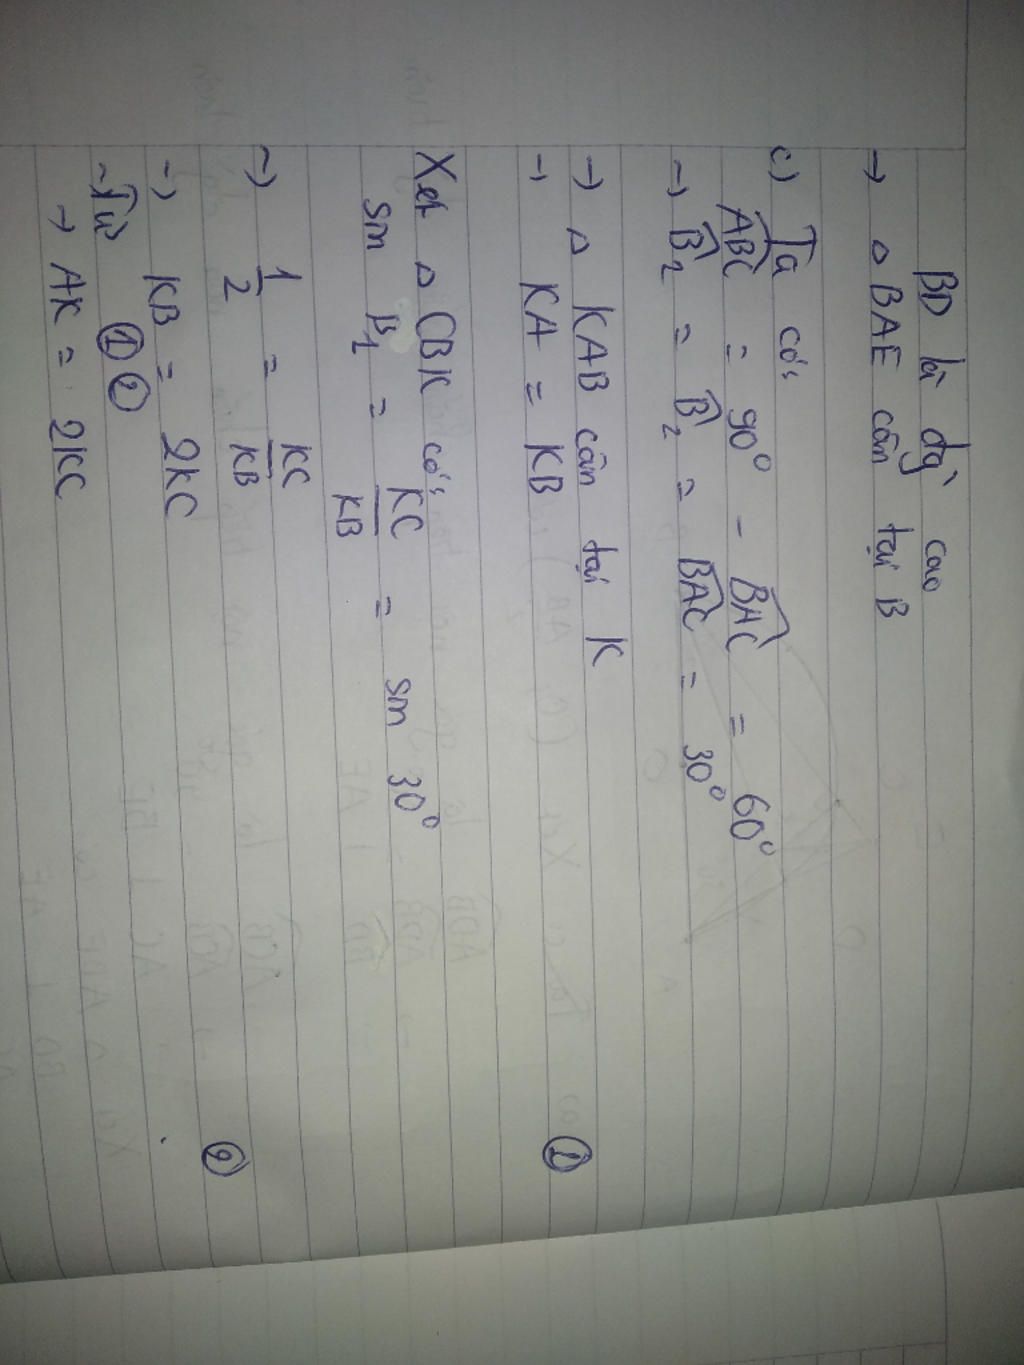 BD là đg` cao
→ △ BAE cân tại B
c) Ta có:
ABC = 90° - BAC = 60°
→ B₂ = B₂ = BAC = 30°
→ △ KAB cân tại K
→ KA = KB ①
Xét △ CBK có:
sin B₁ = KC/KB = sin 30°
→ 1/2 = KC/KB
→ KB = 2KC ②
Từ ① ②
→ AK = 2KC